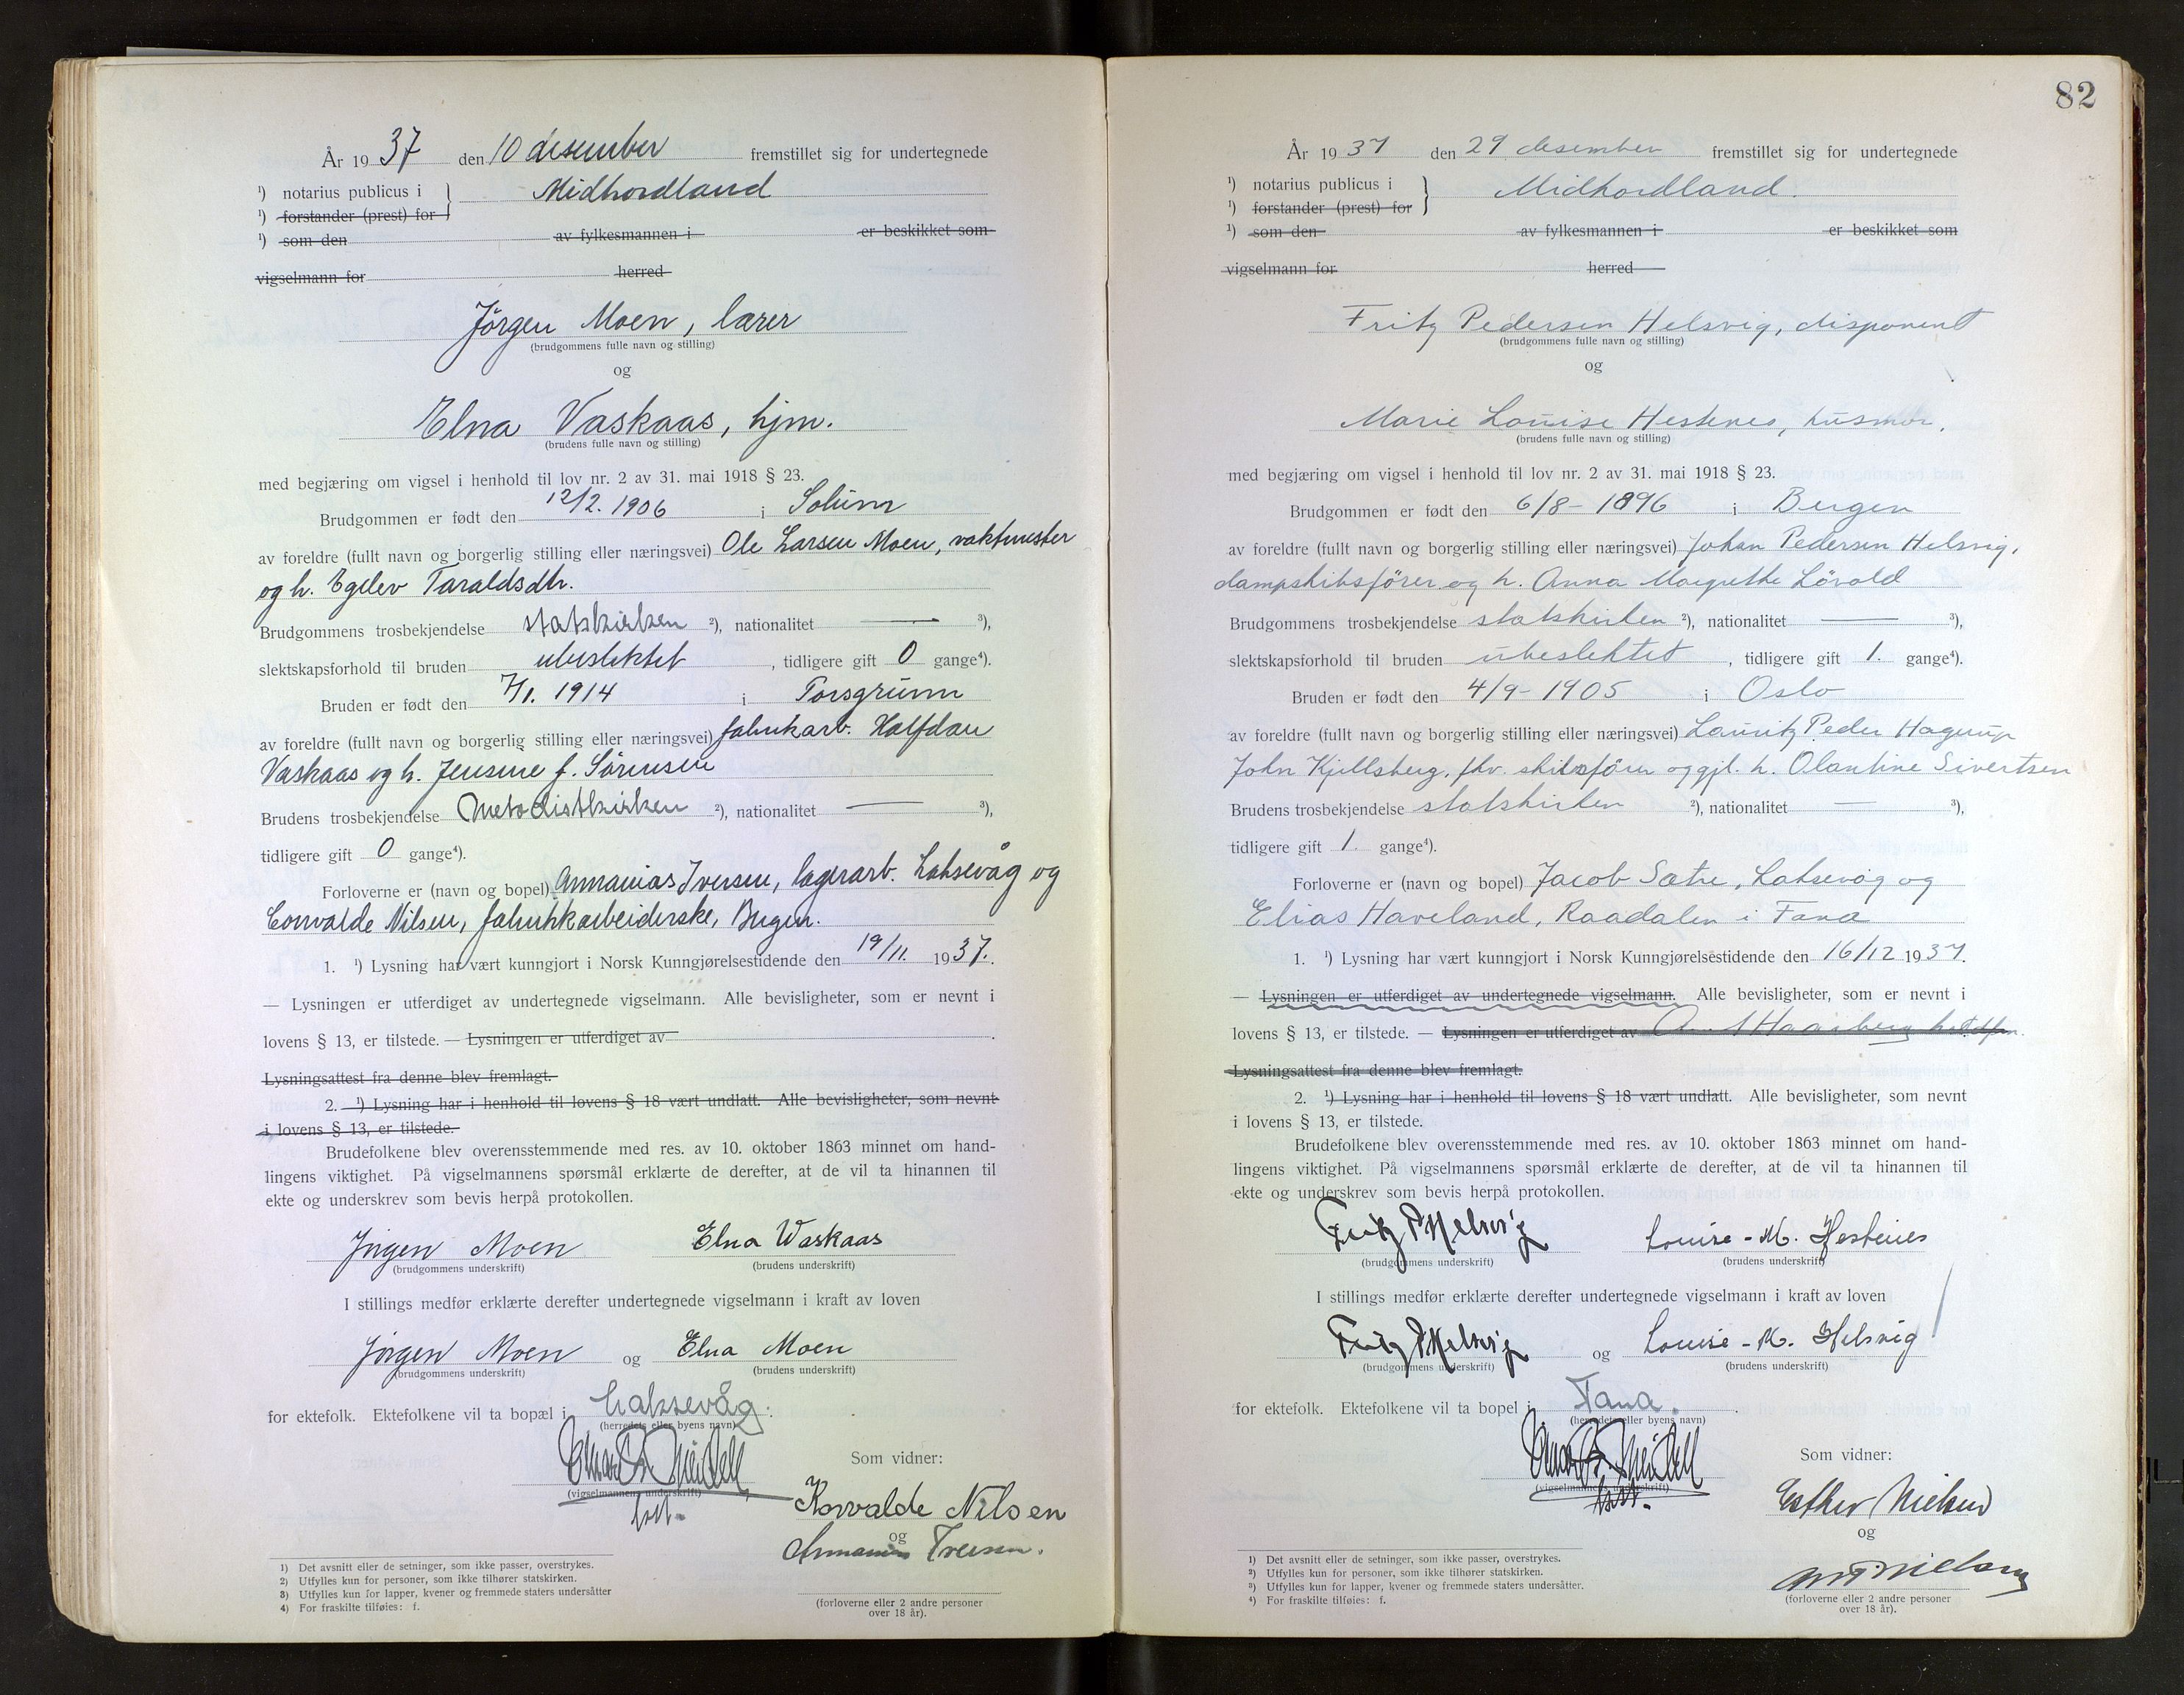 År 19 37 den 10 desember fremstillet sig for undertegnede
¹) notarius publicus i } Midhordland
¹) forstander (prest) for
¹) som den av fylkesmannen i er beskikket som
vigselmann for herred
Jörgen Moen, lærer
(brudgommens fulle navn og stilling)
og
Elna Vaskaas, hjm.
(brudens fulle navn og stilling)
med begjæring om vigsel i henhold til lov nr. 2 av 31. mai 1918 § 23.
Brudgommen er født den 12/2. 1906 i Solum
av foreldre (fullt navn og borgerlig stilling eller næringsvei) Ole Larsen Moen, vaktmester
og h. Egelev Taraldsdtr.
Brudgommens trosbekjendelse statskirken ²), nationalitet — ³),
slektskapsforhold til bruden ubeslektet, tidligere gift 0 gange⁴).
Bruden er født den 7/1. 1914 i Porsgrunn
av foreldre (fullt navn og borgerlig stilling eller næringsvei) fabrikarb. Halfdan
Vaskaas og h. Jensine f. Sörensen
Brudens trosbekjendelse Metodistkirken ²), nationalitet — ³),
tidligere gift 0 gange⁴).
Forloverne er (navn og bopel) Annanias Iversen, lagerarb. Laksevåg og
Corvalde Nilsen, fabrikkarbeiderske, Bergen.
1. ¹) Lysning har vært kunngjort i Norsk Kunngjørelsestidende den 19/11. 1937.
— Lysningen er utferdiget av undertegnede vigselmann. Alle bevisligheter, som er nevnt i
lovens § 13, er tilstede. — Lysningen er utferdiget av
Lysningsattest fra denne blev fremlagt.
2. ¹) Lysning har i henhold til lovens § 18 vært undlatt. Alle bevisligheter, som nevnt
i lovens § 13, er tilstede.
Brudefolkene blev overensstemmende med res. av 10. oktober 1863 minnet om hand-
lingens viktighet. På vigselmannens spørsmål erklærte de derefter, at de vil ta hinannen til
ekte og underskrev som bevis herpå protokollen.
Jörgen Moen Elna Waskaas
(brudgommens underskrift) (brudens underskrift)
I stillings medfør erklærte derefter undertegnede vigselmann i kraft av loven
Jörgen Moen og Elna Moen
(brudgommens underskrift) (brudens underskrift)
for ektefolk. Ektefolkene vil ta bopæl i Laksevåg.
(herredets eller byens navn)
(vigselmannens underskrift)
Som vidner:
Korvalde Nilsen
og
Annanias Iversen.
(forloverne eller 2 andre personer
over 18 år).
1) Det avsnitt eller de setninger, som ikke passer, overstrykes.
2) Utfylles kun for personer, som ikke tilhører statskirken.
3) Utfylles kun for lapper, kvener og fremmede staters undersåtter
4) For fraskilte tilføies: f.
82
År 19 37 den 29 desember fremstillet sig for undertegnede
¹) notarius publicus i } Midhordland.
¹) forstander (prest) for
¹) som den av fylkesmannen i er beskikket som
vigselmann for herred
Fritz Pedersen Helsvig, disponent
(brudgommens fulle navn og stilling)
og
Marie Louise Hestenes, husmor.
(brudens fulle navn og stilling)
med begjæring om vigsel i henhold til lov nr. 2 av 31. mai 1918 § 23.
Brudgommen er født den 6/8 - 1896 i Bergen
av foreldre (fullt navn og borgerlig stilling eller næringsvei) Johan Pedersen Helsvig,
dampskibsförer og h. Anna Margrethe Lövold
Brudgommens trosbekjendelse statskirken ²), nationalitet — ³),
slektskapsforhold til bruden ubeslektet, tidligere gift 1. gange⁴).
Bruden er født den 4/9 - 1905 i Oslo
av foreldre (fullt navn og borgerlig stilling eller næringsvei) Lauritz Peder Hagerup
John Kjellsberg, fhv. skibsförer og gjl. h. Olantine Sivertsen
Brudens trosbekjendelse statskirken ²), nationalitet — ³),
tidligere gift 1. gange⁴).
Forloverne er (navn og bopel) Jacob Sætre, Laksevåg og
Elias Haveland, Raadalen i Fana
1. ¹) Lysning har vært kunngjort i Norsk Kunngjørelsestidende den 16/12 1937.
— Lysningen er utferdiget av undertegnede vigselmann. Alle bevisligheter, som er nevnt i
lovens § 13, er tilstede. — Lysningen er utferdiget av
Lysningsattest fra denne blev fremlagt.
2. ¹) Lysning har i henhold til lovens § 18 vært undlatt. Alle bevisligheter, som nevnt
i lovens § 13, er tilstede.
Brudefolkene blev overensstemmende med res. av 10. oktober 1863 minnet om hand-
lingens viktighet. På vigselmannens spørsmål erklærte de derefter, at de vil ta hinannen til
ekte og underskrev som bevis herpå protokollen.
Fritz P Helsvig Louise - M. Hestenes
(brudgommens underskrift) (brudens underskrift)
I stillings medfør erklærte derefter undertegnede vigselmann i kraft av loven
Fritz P Helsvig og Louise - M. Helsvig
(brudgommens underskrift) (brudens underskrift)
for ektefolk. Ektefolkene vil ta bopel i Fana.
(herredets eller byens navn)
(vigselmannens underskrift)
Som vidner:
Esther Nielsen
og
Nielsen
(forloverne eller 2 andre personer
over 18 år).
¹) Det avsnitt eller de setninger, som ikke passer, overstrykes.
²) Utfylles kun for personer, som ikke tilhører statskirken.
³) Utfylles kun for lapper, kvener og fremmede staters undersåtter.
⁴) For fraskilte tilføies: f.